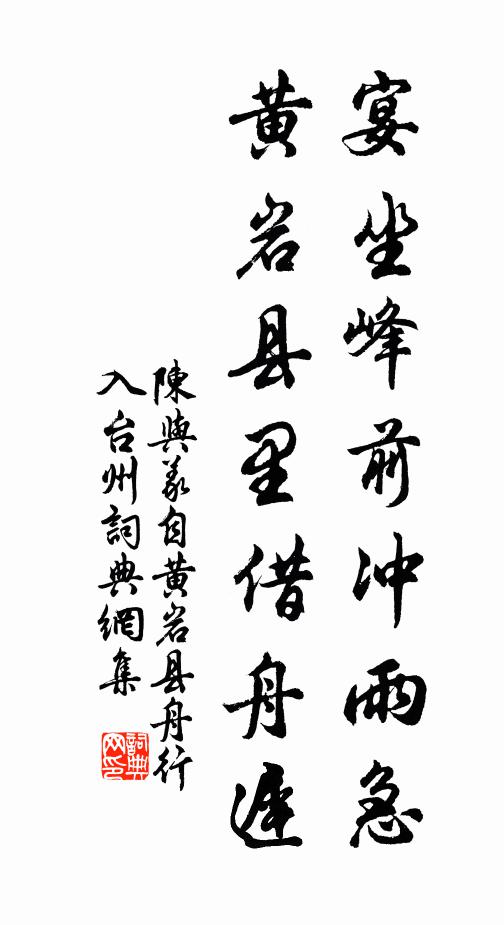 宴坐峰前冲雨急
黄岩县里借舟遲
陳與義自黄岩县舟行
入台州詞典網集
詞典网印